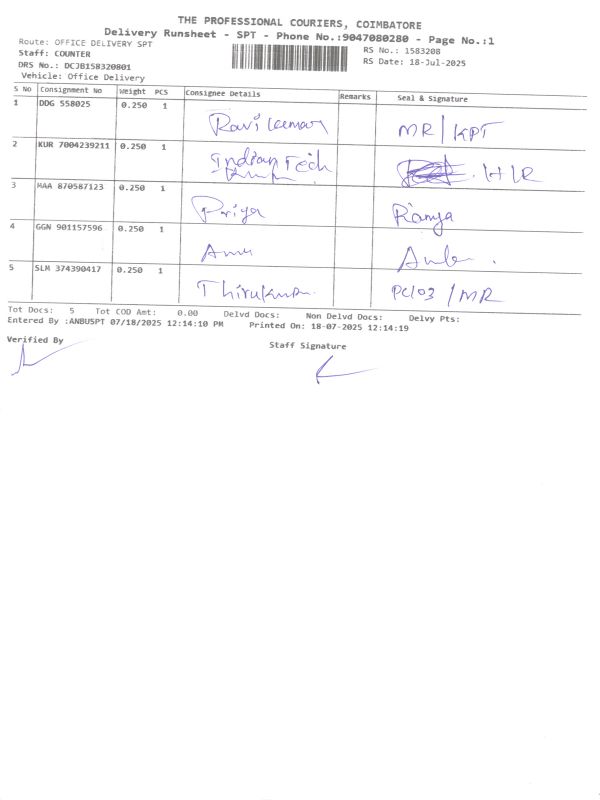 THE PROFESSIONAL COURIERS, COIMBATORE
Delivery Runsheet - SPT - Phone No.:9047080280 - Page No.:1
Route: OFFICE DELIVERY SPT
RS No.: 1583208
Staff: COUNTER
RS Date: 18-Jul-2025
DRS No.: DCJB158320801
Vehicle: Office Delivery
S No Consignment No Weight PCS Consignee Details Remarks Seal & Signature
1 DDG 558025 0.250 1 Ravi Kumar MR/KPT
2 KUR 7004239211 0.250 1 Indian Tech HLR
3 MAA 870587123 0.250 1 Priya Ramya
4 GGN 901157596 0.250 1 Anu
5 SLM 374390417 0.250 1 PC103/MR
Tot Docs: 5 Tot COD Amt: 0.00 Delvd Docs: Non Delvd Docs: Delvy Pts:
Entered By :ANBUSPT 07/18/2025 12:14:10 PM Printed On: 18-07-2025 12:14:19
Verified By
Staff Signature